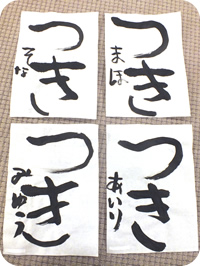 つき
まほ
つき
そな
つき
あいり
つき
みゆう